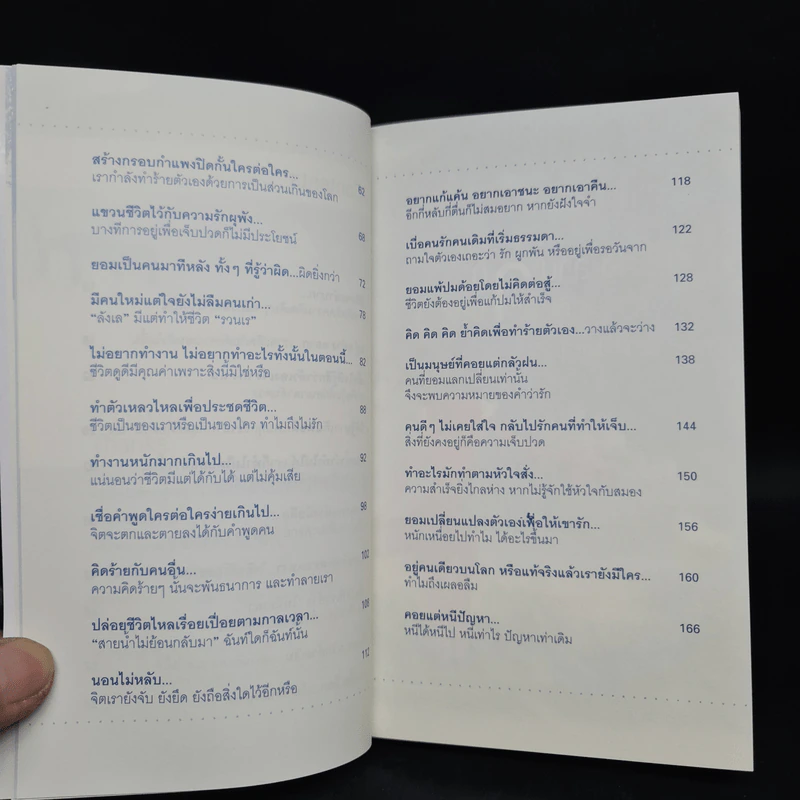 สร้างกรอบกำแพงปิดกั้นใครต่อใคร...
เรากำลังทำร้ายตัวเองด้วยการเป็นส่วนเกินของโลก 62
แขวนชีวิตไว้กับความรักผุพัง...
บางทีการอยู่เพื่อเจ็บปวดก็ไม่มีประโยชน์ 68
ยอมเป็นคนมาทีหลัง ทั้งๆ ที่รู้ว่าผิด...ผิดยิ่งกว่า 72
มีคนใหม่แต่ใจยังไม่ลืมคนเก่า...
“ลังเล” มีแต่ทำให้ชีวิต “รวนเร” 78
ไม่อยากทำงาน ไม่อยากทำอะไรทั้งนั้นในตอนนี้... 82
ชีวิตดูดีมีคุณค่าเพราะสิ่งนี้มิใช่หรือ
ทำตัวเหลวไหลเพื่อประชดชีวิต... 88
ชีวิตเป็นของเราหรือเป็นของใคร ทำไมถึงไม่รัก
ทำงานหนักมากเกินไป... 92
แน่นอนว่าชีวิตมีแต่ได้กับได้ แต่ไม่คุ้มเสีย
เชื่อคำพูดใครต่อใครง่ายเกินไป... 98
จิตจะตกและตายลงได้กับคำพูดคน
คิดร้ายกับคนอื่น... 102
ความคิดร้ายๆ นั้นจะพันธนาการ และทำลายเรา
ปล่อยชีวิตไหลเรื่อยเปื่อยตามกาลเวลา... 106
“สายน้ำไม่ย้อนกลับมา” ฉันท์ใดก็ฉันท์นั้น
นอนไม่หลับ... 112
จิตเรายังจับ ยังยึด ยังถือสิ่งใดไว้อีกหรือ
อยากแก้แค้น อยากเอาชนะ อยากเอาคืน... 118
อีกกี่หลับกี่ตื่นก็ไม่สมอยาก หากยังฝังใจจำ
เบื่อคนรักคนเดิมที่เริ่มธรรมดา... 122
ถามใจตัวเองเถอะว่า รัก ผูกพัน หรืออยู่เพื่อรอวันจาก
ยอมแพ้ปมด้อยโดยไม่คิดต่อสู้... 128
ชีวิตยังต้องอยู่เพื่อแก้ปมให้สำเร็จ
คิด คิด คิด ย้ำคิดเพื่อทำร้ายตัวเอง...วางแล้วจะว่าง 132
เป็นมนุษย์ที่คอยแต่กลัวฝน... 138
คนที่ยอมแลกเปลี่ยนเท่านั้น
จึงจะพบความหมายของคำว่ารัก
คนดีๆ ไม่เคยใส่ใจ กลับไปรักคนที่ทำให้เจ็บ... 144
สิ่งที่ยังคงอยู่ก็คือความเจ็บปวด
ทำอะไรมักทำตามหัวใจสั่ง... 150
ความสำเร็จยิ่งไกลห่าง หากไม่รู้จักใช้หัวใจกับสมอง
ยอมเปลี่ยนแปลงตัวเองเพื่อให้เขารัก... 156
หนักเหนื่อยไปทำไม ได้อะไรขึ้นมา
อยู่คนเดียวบนโลก หรือแท้จริงแล้วเรายังมีใคร... 160
ทำไมถึงเผลอลืม
คอยแต่หนีปัญหา... 166
หนีได้หนีไป หนีเท่าไร ปัญหาเท่าเดิม